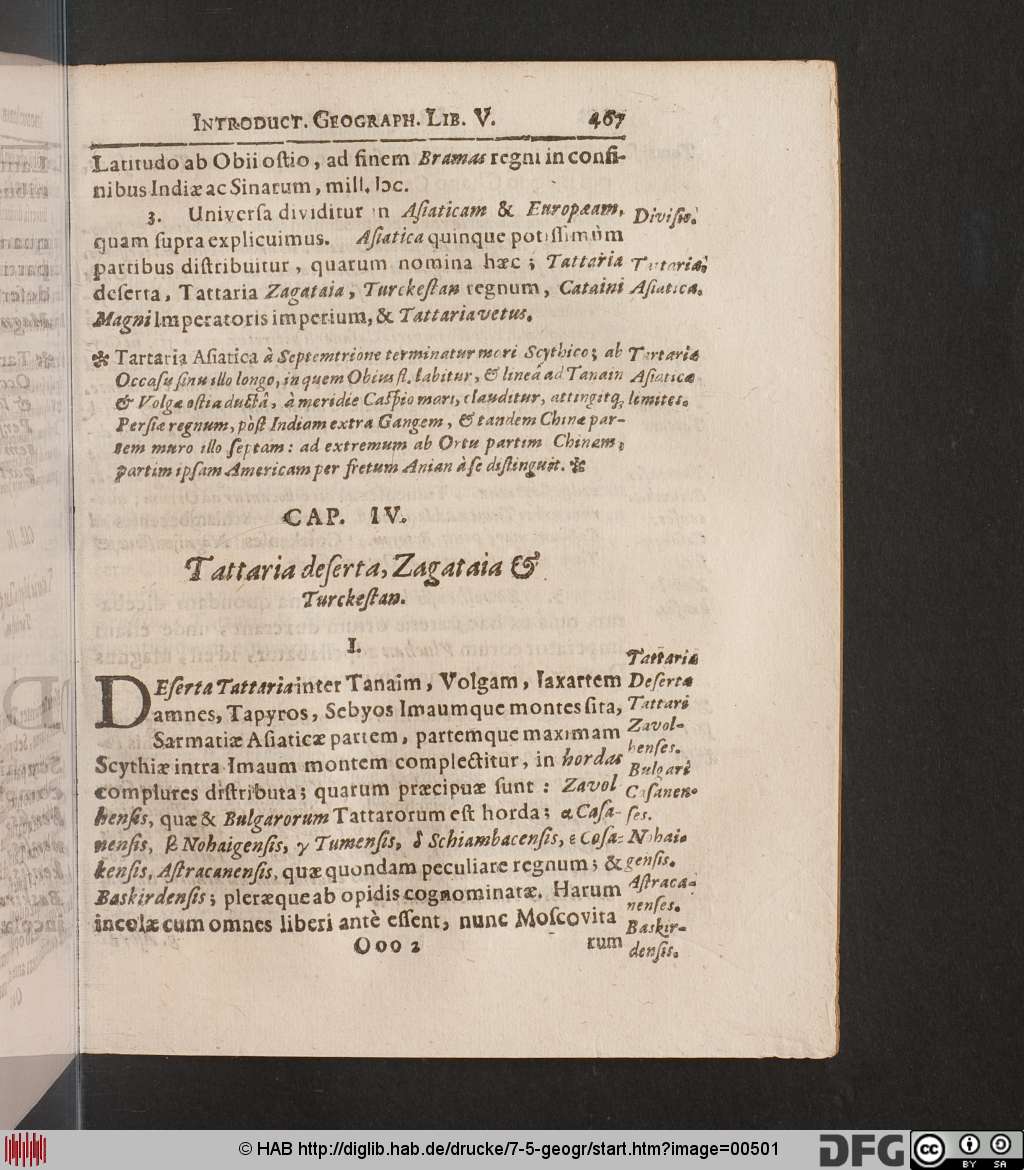 INTRODUCT. GEOGRAPH. LIB. V. 467
Latitudo ab Obii oſtio, ad finem Bramas regni in confi-
nibus Indiæ ac Sinarum, mill. Iɔc.
3. Univerſa dividitur in Aſiaticam & Europæam,
quam ſupra explicuimus. Aſiatica quinque potiſſimùm
partibus diſtribuitur, quarum nomina hæc; Tattaria
deſerta, Tattaria Zagataia, Turckeſtan regnum, Cataini
Magni Imperatoris imperium, & Tattaria vetus.
Diviſio.
Tataria
Aſiatica.
✻ Tartaria Aſiatica à Septemtrione terminatur mari Scythico; ab
Occaſu ſinu illo longo, in quem Obius fl. labitur, & lineâ ad Tanain
& Volgæ oſtia ductâ, à meridie Caſpio mari, clauditur, attingitq;
Perſiæ regnum, pòſt Indiam extra Gangem, & tandem Chinæ par-
tem muro illo ſeptam: ad extremum ab Ortu partim Chinam,
partim ipſam Americam per fretum Anian à ſe diſtinguit. ✻
Tartariæ
Aſiaticæ
limites.
CAP. IV.
Tattaria deſerta, Zagataia &
Turckeſtan.
I.
DEſerta Tattaria inter Tanaim, Volgam, Iaxartem
amnes, Tapyros, Sebyos Imaumque montes ſita,
Sarmatiæ Aſiaticæ partem, partemque maximam
Scythiæ intra Imaum montem complectitur, in hordas
complures diſtributa; quarum præcipuæ ſunt: Zavol
henſis, quæ & Bulgarorum Tattarorum eſt horda; α Caſa-
nenſis, β Nohaigenſis, γ Tumenſis, δ Schiambacenſis, ε Coſa-
kenſis, Aſtracanenſis, quæ quondam peculiare regnum; &
Baskirdenſis; pleræque ab opidis cognominatæ. Harum
incolæ cum omnes liberi antè eſſent, nunc Moſcovita
Tattaria
Deſerta
Tattari
Zavol-
henſes.
Bulgari
Caſanen-
ſes.
Nohai-
genſis.
Aſtraca-
nenſes.
Baskir-
denſis.
Ooo 2 rum
© HAB http://diglib.hab.de/drucke/7-5-geogr/start.htm?image=00501
DFG
cc
BY SA